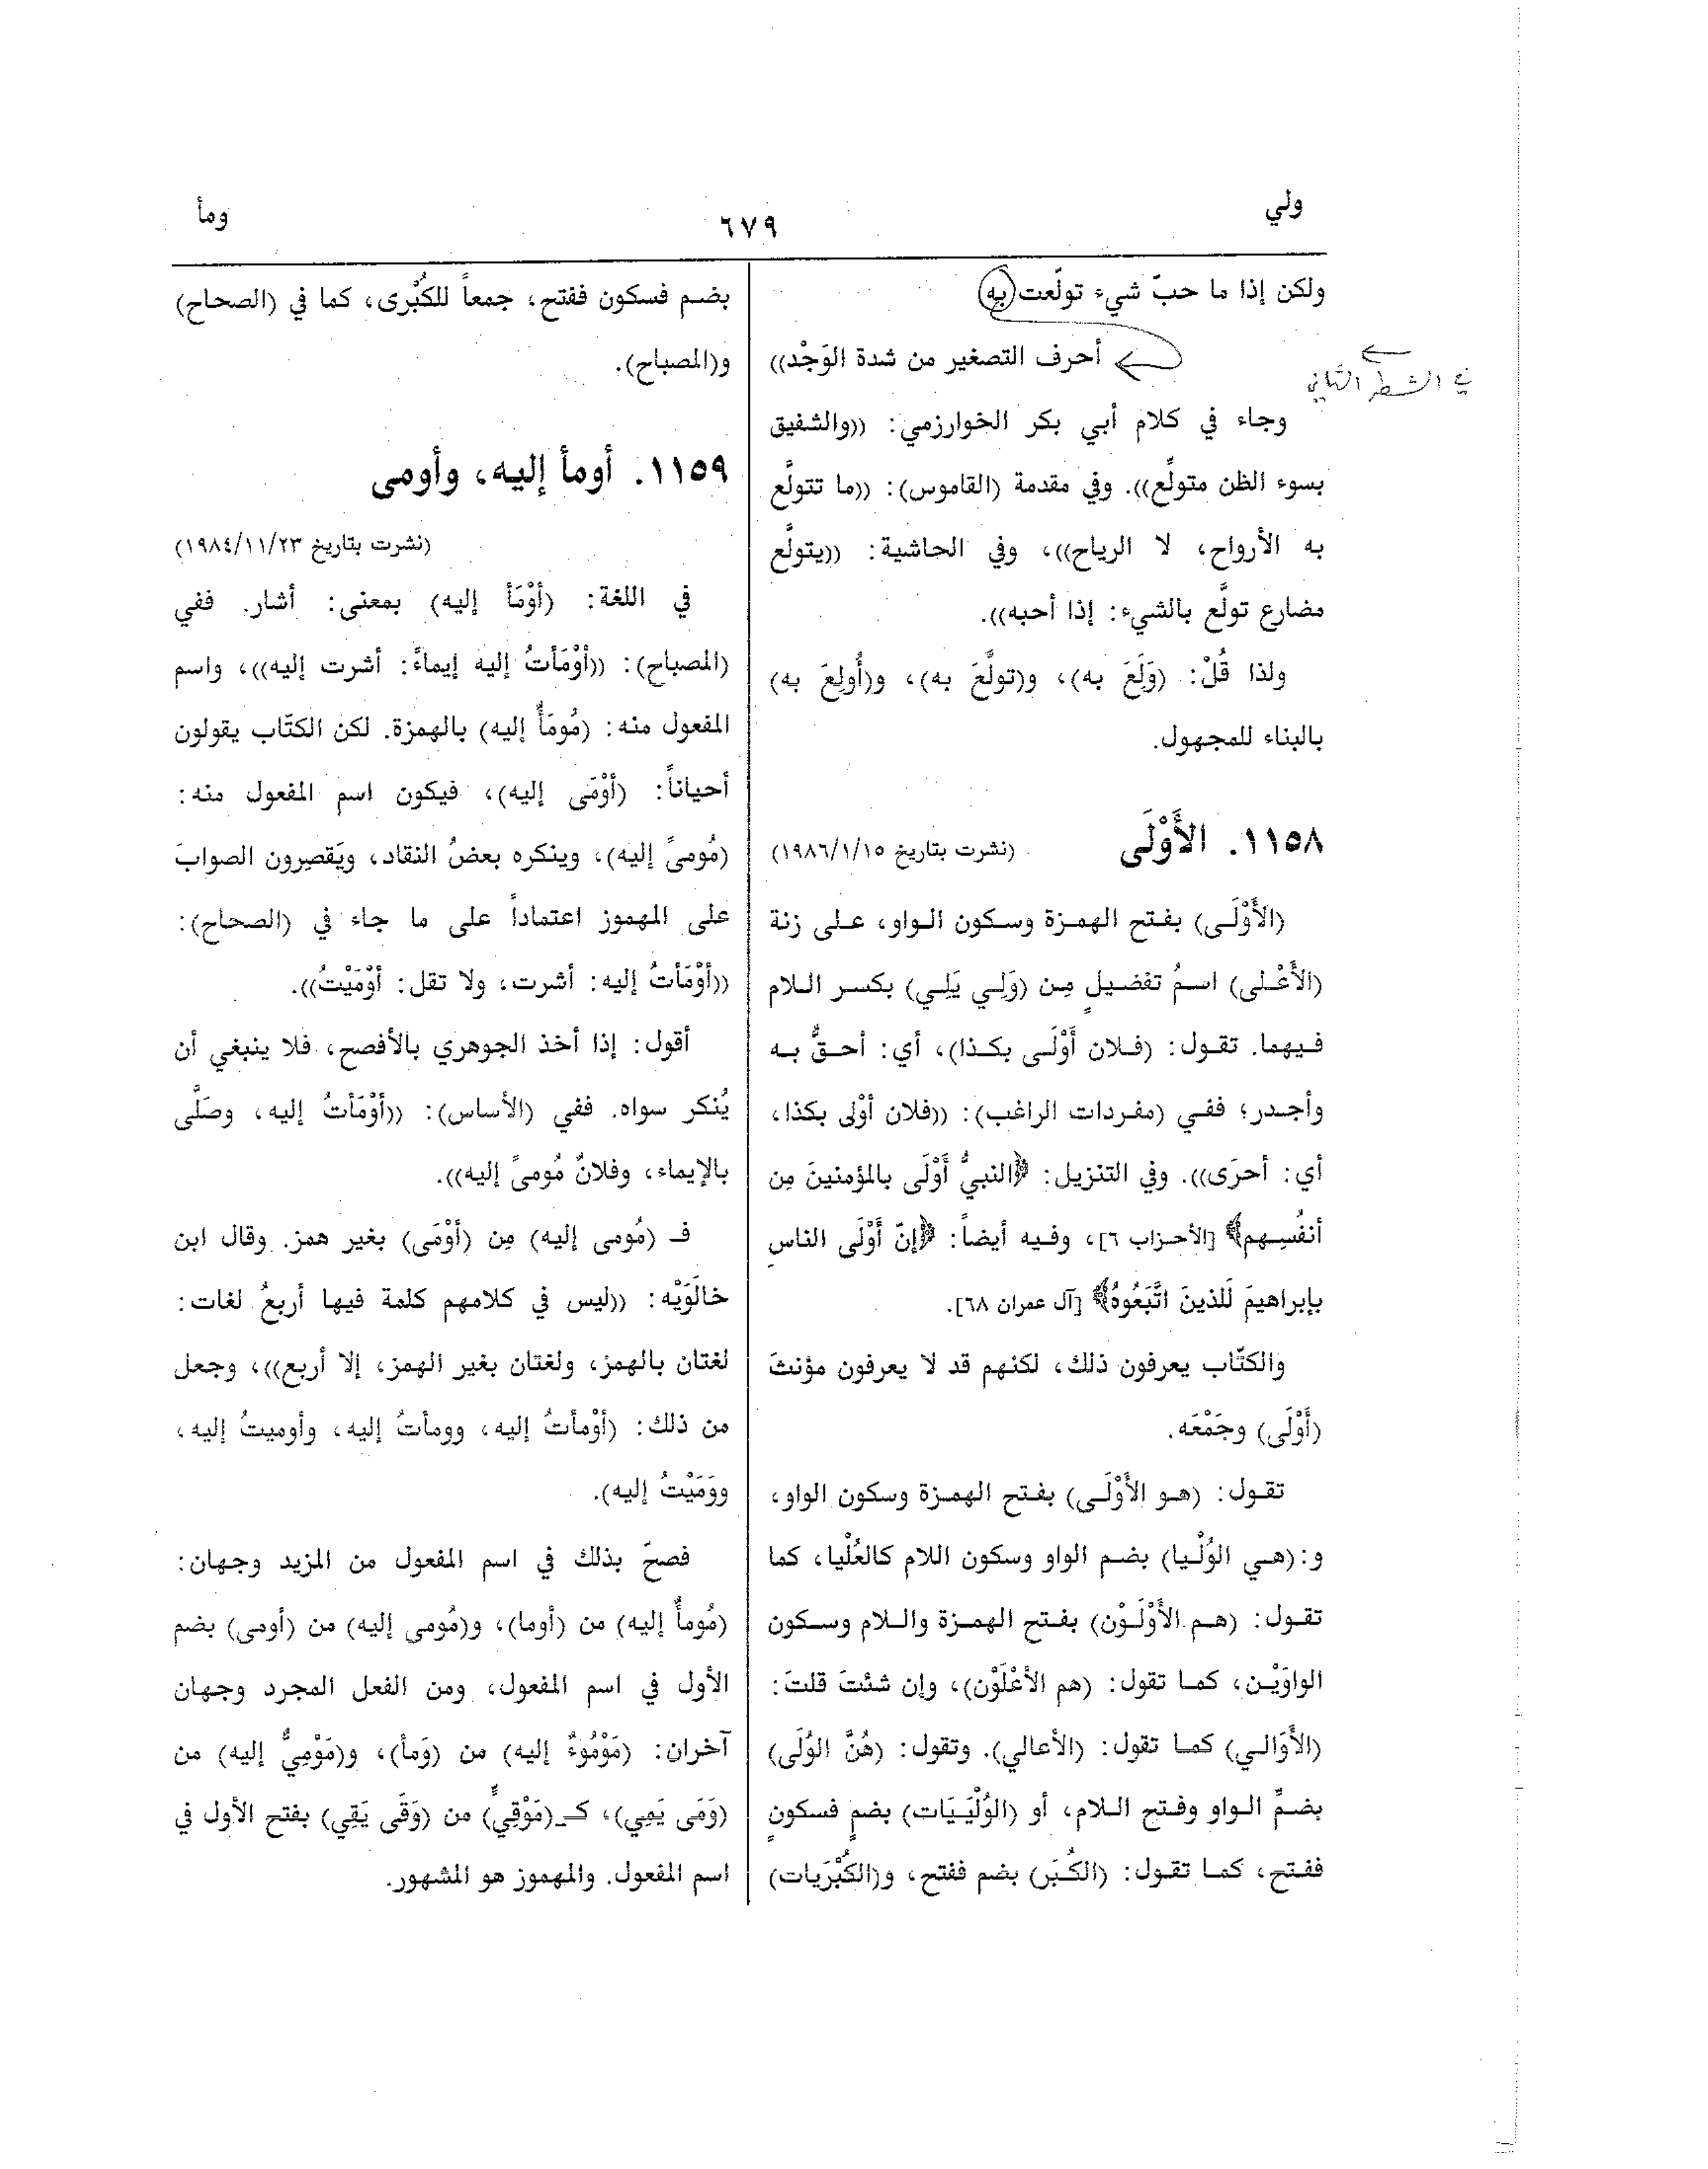 ولي
٦٧٩
ومأ
ولكن إذا ما حبّ شيء تولّعت به
أحرف التصغير من شدة الوَجْد))
في الشطر الثاني
وجاء في كلام أبي بكر الخوارزمي: ((والشفيق
بسوء الظن متولِّع)). وفي مقدمة (القاموس): ((ما تتولَّع
به الأرواح، لا الرياح))، وفي الحاشية: ((يتولَّع
مضارع تولَّع بالشيء: إذا أحبه)).
ولذا قُلْ: (وَلِعَ به)، و(تولَّعَ به)، و(أُولِعَ به)
بالبناء للمجهول.
١١٥٨. الأَوْلَى
(نشرت بتاريخ ١٩٨٦/١/١٥)
(الأَوْلَى) بفتح الهمزة وسكون الواو، على زنة
(الأَعْلى) اسمُ تفضيلٍ مِن (وَلِي يَلِي) بكسر اللام
فيهما. تقول: (فلان أَوْلَى بكذا)، أي: أحقُّ به
وأجدر؛ ففي (مفردات الراغب): ((فلان أوْلى بكذا،
أي: أحرَى)). وفي التنزيل: ﴿النبيُّ أَوْلَى بالمؤمنينَ مِن
أنفُسِهم﴾ [الأحزاب ٦]، وفيه أيضاً: ﴿إنّ أَوْلَى الناسِ
بإبراهيمَ لَلذينَ اتَّبَعُوهُ﴾ [آل عمران ٦٨].
والكتّاب يعرفون ذلك، لكنهم قد لا يعرفون مؤنثَ
(أَوْلَى) وجَمْعَه.
تقول: (هو الأَوْلَى) بفتح الهمزة وسكون الواو،
و:(هي الوُلْيا) بضم الواو وسكون اللام كالعُلْيا، كما
تقول: (هم الأَوْلَوْن) بفتح الهمزة واللام وسكون
الواوَيْن، كما تقول: (هم الأعْلَوْن)، وإن شئتَ قلتَ:
(الأَوَالي) كما تقول: (الأعالي). وتقول: (هُنَّ الوُلَى)
بضمِّ الواو وفتح اللام، أو (الوُلْيَيَات) بضمٍ فسكونٍ
ففتح، كما تقول: (الكُبَر) بضم ففتح، و(الكُبْرَيات)
بضم فسكون ففتح، جمعاً للكُبْرى، كما في (الصحاح)
و(المصباح).
١١٥٩. أومأ إليه، وأومى
(نشرت بتاريخ ١٩٨٤/١١/٢٣)
في اللغة: (أوْمَأ إليه) بمعنى: أشار. ففي
(المصباح): ((أوْمَأتُ إليه إيماءً: أشرت إليه))، واسم
المفعول منه: (مُومَأٌ إليه) بالهمزة. لكن الكتّاب يقولون
أحياناً: (أوْمَى إليه)، فيكون اسم المفعول منه:
(مُومىً إليه)، وينكره بعضُ النقاد، ويَقصِرون الصوابَ
على المهموز اعتماداً على ما جاء في (الصحاح):
((أوْمَأتُ إليه: أشرت، ولا تقل: أوْمَيْتُ)).
أقول: إذا أخذ الجوهري بالأفصح، فلا ينبغي أن
يُنكر سواه. ففي (الأساس): ((أوْمَأتُ إليه، وصَلَّى
بالإيماء، وفلانٌ مُومىً إليه)).
فـ (مُومى إليه) مِن (أوْمَى) بغير همز. وقال ابن
خالَوَيْه: ((ليس في كلامهم كلمة فيها أربعُ لغات:
لغتان بالهمز، ولغتان بغير الهمز، إلا أربع))، وجعل
من ذلك: (أوْمأتُ إليه، وومأتُ إليه، وأوميتُ إليه،
ووَمَيْتُ إليه).
فصحّ بذلك في اسم المفعول من المزيد وجهان:
(مُومأٌ إليه) من (أوما)، و(مُومى إليه) من (أومى) بضم
الأول في اسم المفعول، ومن الفعل المجرد وجهان
آخران: (مَوْمُوءٌ إليه) من (وَمأ)، و(مَوْمِيٌّ إليه) من
(وَمَى يَمِي)، كـ(مَوْقِيٍّ) من (وَقَى يَقِي) بفتح الأول في
اسم المفعول. والمهموز هو المشهور.